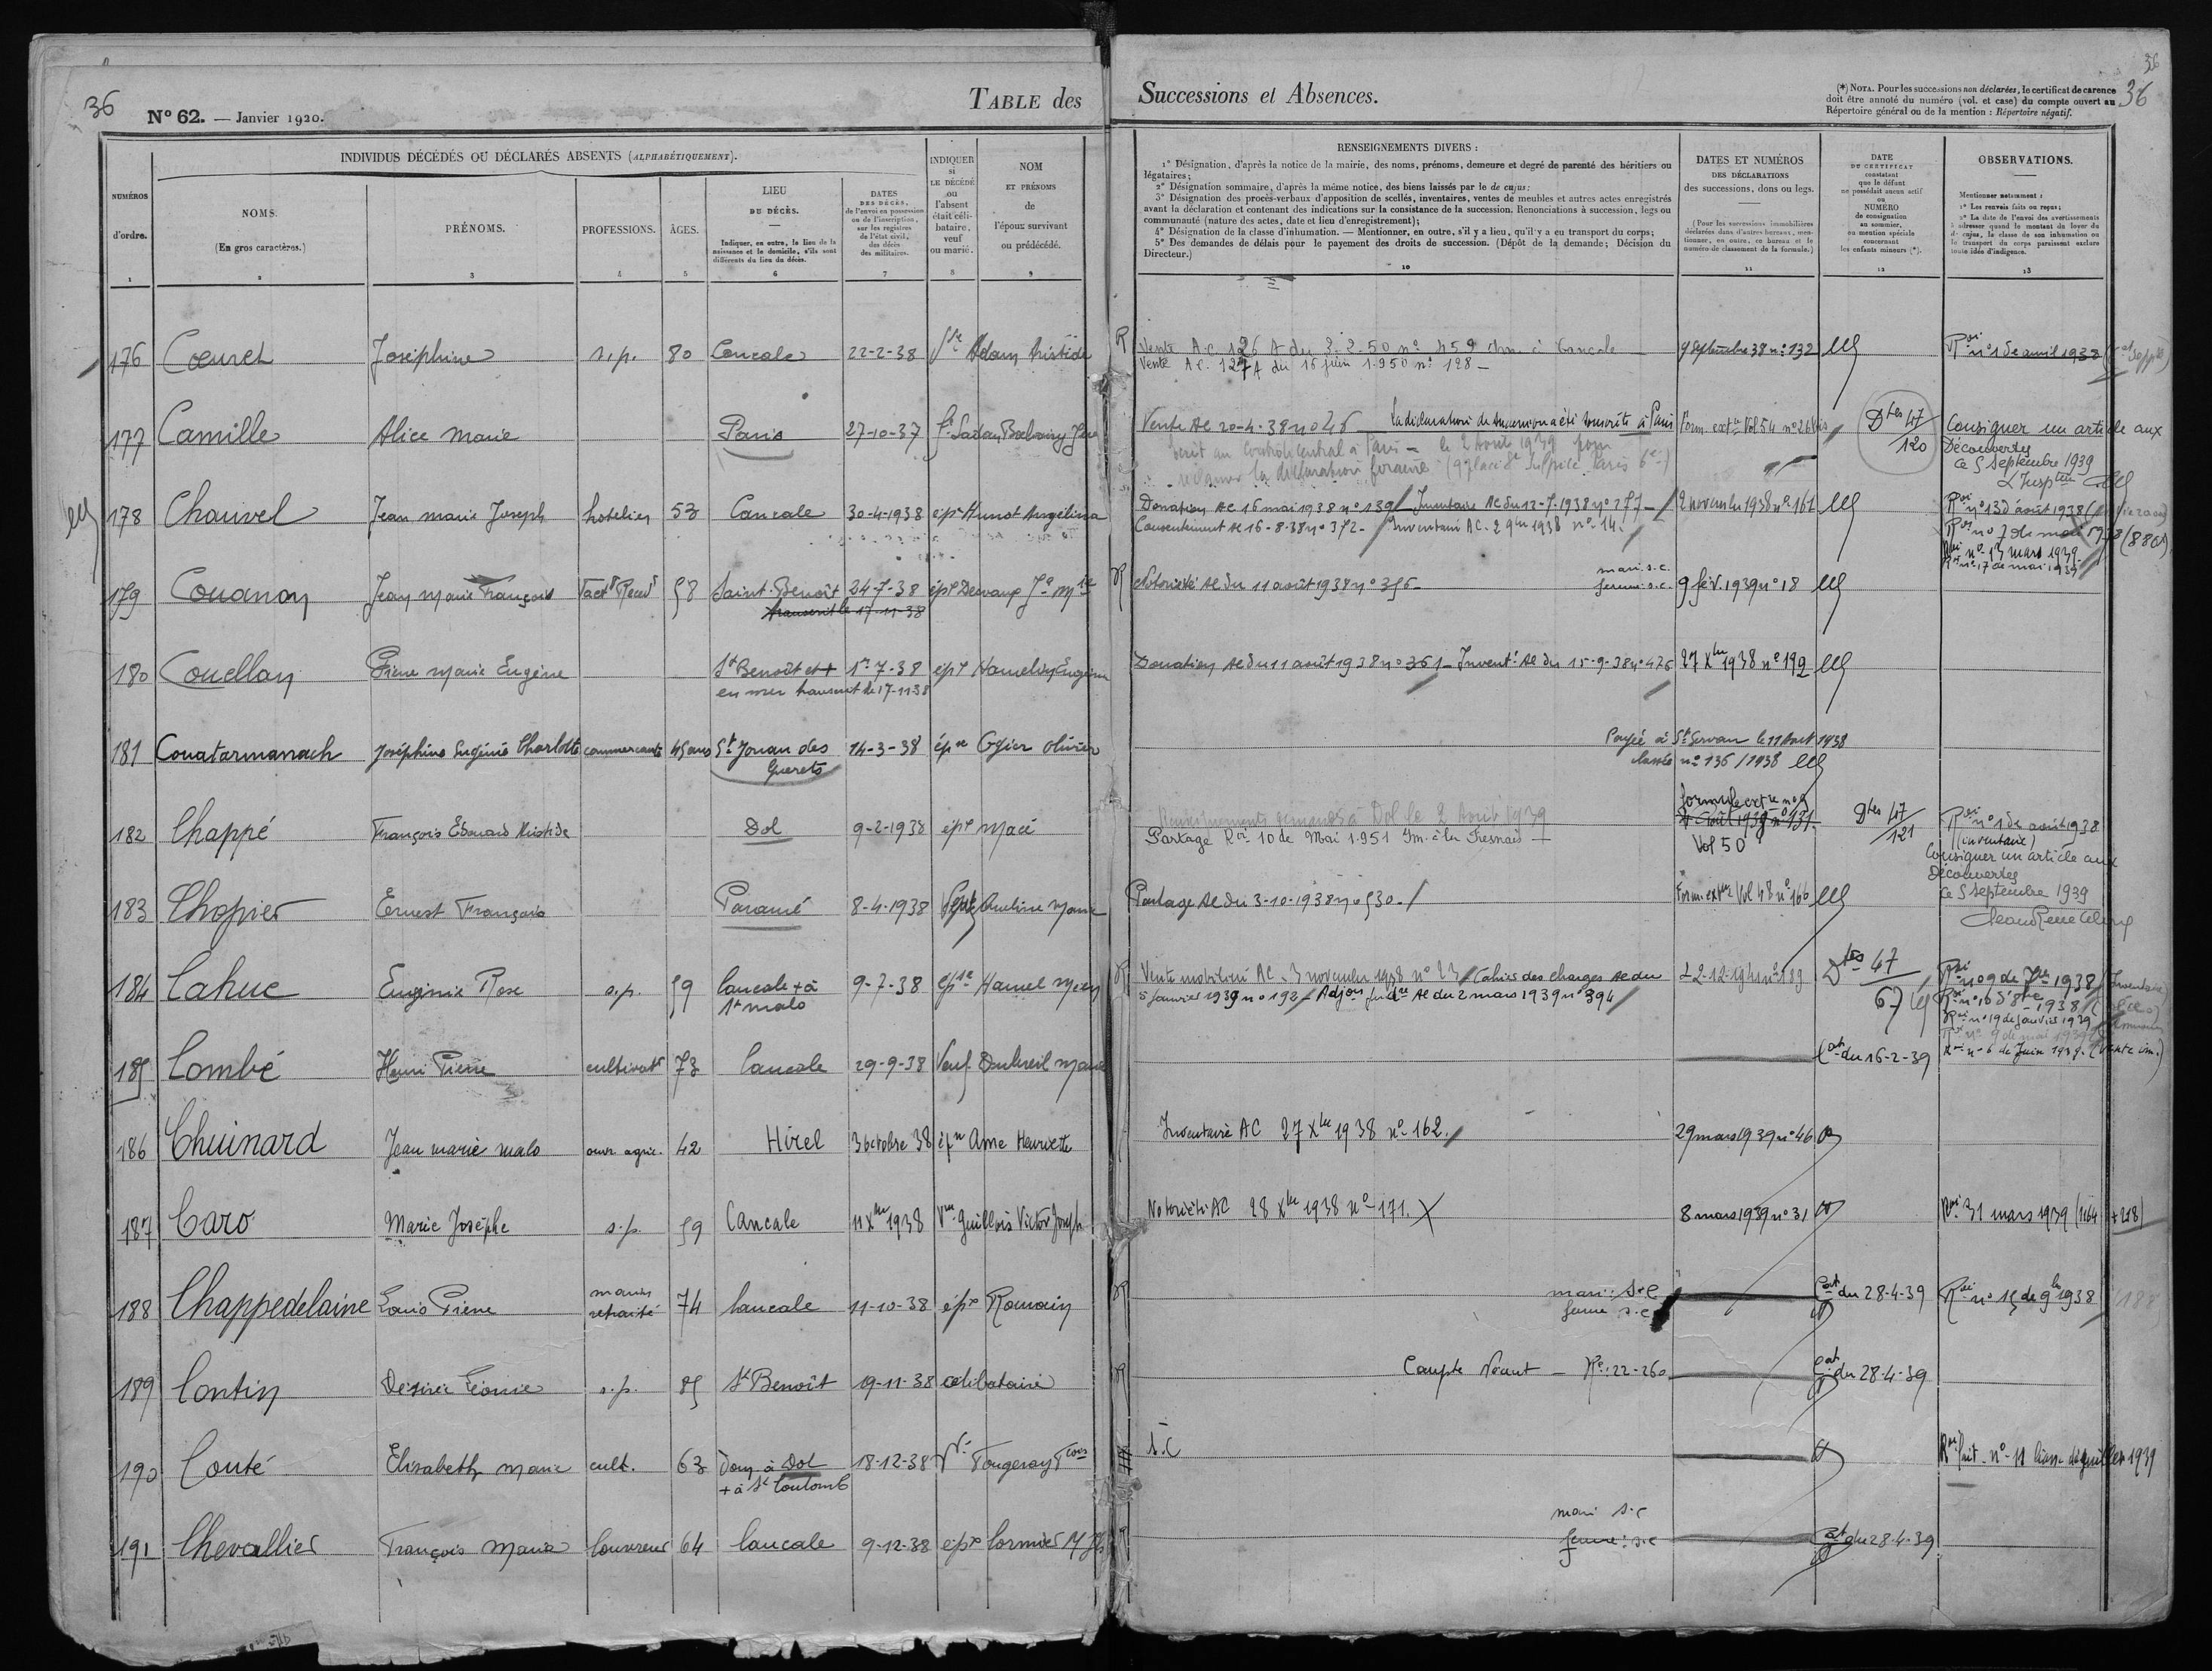 36
N° 62. — Janvier 1920.
TABLE des Successions et Absences.
36
36
(*) NOTA. Pour les successions non déclarées, le certificat de carence
doit être annoté du numéro (vol. et case) du compte ouvert au
Répertoire général ou de la mention : Répertoire négatif.
NUMÉROS
d'ordre.
1
INDIVIDUS DÉCÉDÉS OU DÉCLARÉS ABSENTS (ALPHABÉTIQUEMENT).
NOMS.
(En gros caractères.)
2
PRÉNOMS.
3
PROFESSIONS.
4
ÂGES.
5
LIEU
DU DÉCÈS.
Indiquer, en outre, le lieu de la
naissance et le domicile, s'ils sont
différents du lieu du décès.
6
DATES
DES DÉCÈS,
de l'envoi en possession
ou de l'inscription,
sur les registres
de l'état civil,
des décès
des militaires.
7
INDIQUER
si
LE DÉCÉDÉ
ou
l'absent
était céli-
bataire,
veuf
ou marié.
8
NOM
ET PRÉNOMS
de
l'époux survivant
ou prédécédé.
9
RENSEIGNEMENTS DIVERS :
1° Désignation, d'après la notice de la mairie, des noms, prénoms, demeure et degré de parenté des héritiers ou
légataires;
2° Désignation sommaire, d'après la même notice, des biens laissés par le de cujus;
3° Désignation des procès-verbaux d'apposition de scellés, inventaires, ventes de meubles et autres actes enregistrés
avant la déclaration et contenant des indications sur la consistance de la succession. Renonciations à succession, legs ou
communauté (nature des actes, date et lieu d'enregistrement);
4° Désignation de la classe d'inhumation. — Mentionner, en outre, s'il y a lieu, qu'il y a eu transport du corps;
5° Des demandes de délais pour le payement des droits de succession. (Dépôt de la demande; Décision du
Directeur.)
10
DATES ET NUMÉROS
DES DÉCLARATIONS
des successions, dons ou legs.
(Pour les successions immobilières
déclarées dans d'autres bureaux, men-
tionner, en outre, ce bureau et le
numéro de classement de la formule.)
11
DATE
DU CERTIFICAT
constatant
que le défunt
ne possédait aucun actif
ou
NUMÉRO
de consignation
au sommier,
ou mention spéciale
concernant
les enfants mineurs (*).
12
OBSERVATIONS.
Mentionner notamment :
1° Les renvois faits ou reçus;
2° La date de l'envoi des avertissements
à adresser quand le montant du loyer du
de cujus, la classe de son inhumation ou
le transport du corps paraissent exclure
toute idée d'indigence.
13
176 Cœuret Joséphine s.p. 80 Cancale 22-2-38 Adam Aristide R Vente A.C. 126 A du 2.2.50 n° 459 Im. à Cancale 9 septembre 38 n° 132 Roi n° 1 de avril 1938
Vente A.C. 127 A du 16 juin 1950 n° 128 —
177 Camille Alice Marie Paris 27-10-37 Vente AC 20-4-38 n° 46 La déclaration de succession a été souscrite à Paris Form. extre Vol 54 n° 26 bis Dtes 47/120 Consigner un article aux
Découvertes
Ce 5 septembre 1939
Ecrit au Contrôle central à Paris — le 2 Août 1939 pour
réclamer la déclaration foraine
178 Chauvel Jean Marie Joseph hotelier 53 Cancale 30-4-1938 épx Hunot Angélina Donation AC 16 mai 1938 n° 139 / Inventaire AC du 12-7-1938 n° 287 — 2 novembre 1938 n° 161 Roi n° 13 d'août 1938
Consentement AC 16-8-38 n° 372 — Inventaire AC 2 9bre 1938 n° 14. Roi n° 7 de mai 1938
Roi n° 13 mars 1939
Roi n° 17 de mai 1939
179 Couanon Jean Marie François 58 Saint-Benoît 24-7-38 R Notoriété AC du 11 août 1938 n° 356 — mari s.c.
femme s.c. 9 fév. 1939 n° 18
transcrit le 17-11-38
180 Couellan Pierre Marie Eugène St Benoît et + 1er-7-38 épx Hamelin Eugénie Donation AC du 11 août 1938 n° 361 — Inventre AC du 15-9-38 n° 426 27 Xbre 1938 n° 192
en mer transcrit le 17-11-38
181 Couatarmanach Joséphine Eugénie Charlotte commerçante 45 ans St Jouan des 14-3-38 épse Ogier Olivier Payée à St Servan le 11 Août 1938
Guerets classée n° 136 / 1938
182 Chappé François Edouard Aristide Dol 9-2-1938 épx Macé Renseignements demandés à Dol le 2 Août 1939 formule extre n° 9
2 Août 1939 n° 131. Dtes 47/121 Roi n° 1 de août 1938
Partage Roi 10 de Mai 1951 Im. à la Fresnais Vol 50 (inventaire)
Consigner un article aux
Découvertes
183 Chopier Ernest François Paramé 8-4-1938 Partage AC du 3-10-1938 n° 530. / Form. extre Vol 48 n° 160 Ce 5 septembre 1939
184 Cahue Eugénie Rose s.p. 59 Cancale + à 9-7-38 épse Hamel R Vente mobilière AC. 3 novembre 1938 n° 23 / Cahier des charges AC du 189 Dtes 47/67 Roi n° 9 de 7bre 1938 (Inventaire)
St Malo 5 janvier 1939 n° 192 / Adjon AC du 2 mars 1939 n° 394 Roi n° 16 d'8bre 1938
Roi n° 19 de janvier 1939
185 Combé Henri Pierre cultivatr 73 Cancale 29-9-38 Veuf Dubreil Marie Cat du 16-2-39 Roi n° 6 de Juin 1939. (Vente im.)
186 Chuinard Jean Marie Malo ouvr. agric. 42 Hirel 3 octobre 38 épx Anne Henriette Inventaire AC 27 Xbre 1938 n° 162. 29 mars 1939 n° 46
187 Caro Marie Josèphe s.p. 59 Cancale 11 Xbre 1938 Vve Guillois Victor Joseph Notoriété AC 28 Xbre 1938 n° 171. 8 mars 1939 n° 31 Roi 31 mars 1939 (1164 + 218)
188 Chappedelaine Louis Pierre marin
retraité 74 Cancale 11-10-38 épx Romain R mari : s.c
femme s.c Cat du 28-4-39 Roi n° 15 de 9bre 1938 188
189 Contin Désirée Léonie s.p. 85 St Benoît 19-11-38 célibataire R Compte Néant — Re : 22-260 Cat du 28-4-39
190 Couté Elisabeth Marie cult. 63 Dom à Dol 18-12-38 Vve Fougeray Fcois s.c
+ à St Coulomb
191 Chevallier François Marie Couvreur 64 Cancale 9-12-38 épx Cormier mari s.c
femme : s.c Cat du 28-4-39